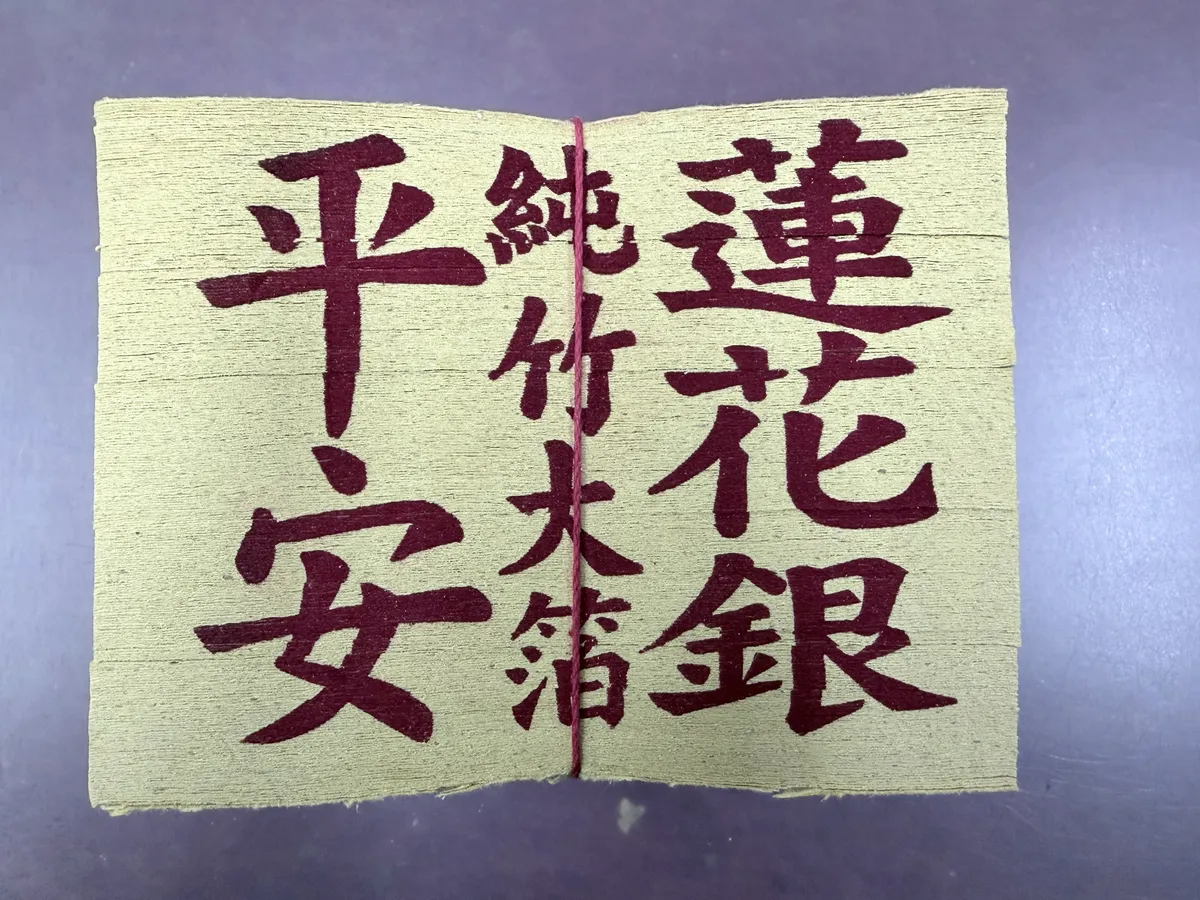 蓮花銀
純竹大箔
平安